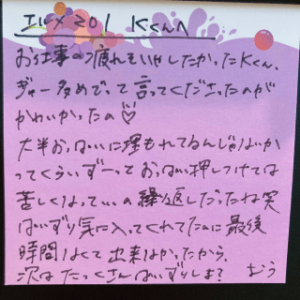 エルメ201 Kくんへ
お仕事の疲れをいやしたかったKくん。
ギャー多めでって言ってくださったのが
かわいかったの♡
大半おっぱいに埋もれてるんじゃないか
ってくらいずーっとおっぱい押しつけては
苦しくなっていの繰り返しだったね笑
ぱいずり気に入ってくれてたのに最後
時間なくて出来なかったから、
次はたっくさんぱいずりしよ?
むう